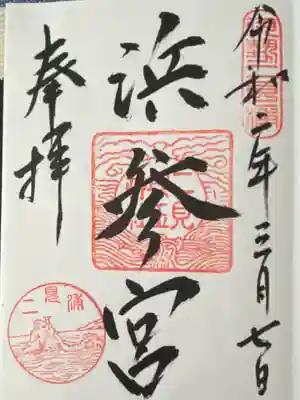 令和二年三月七日
浜参宮
奉拝
二見浦